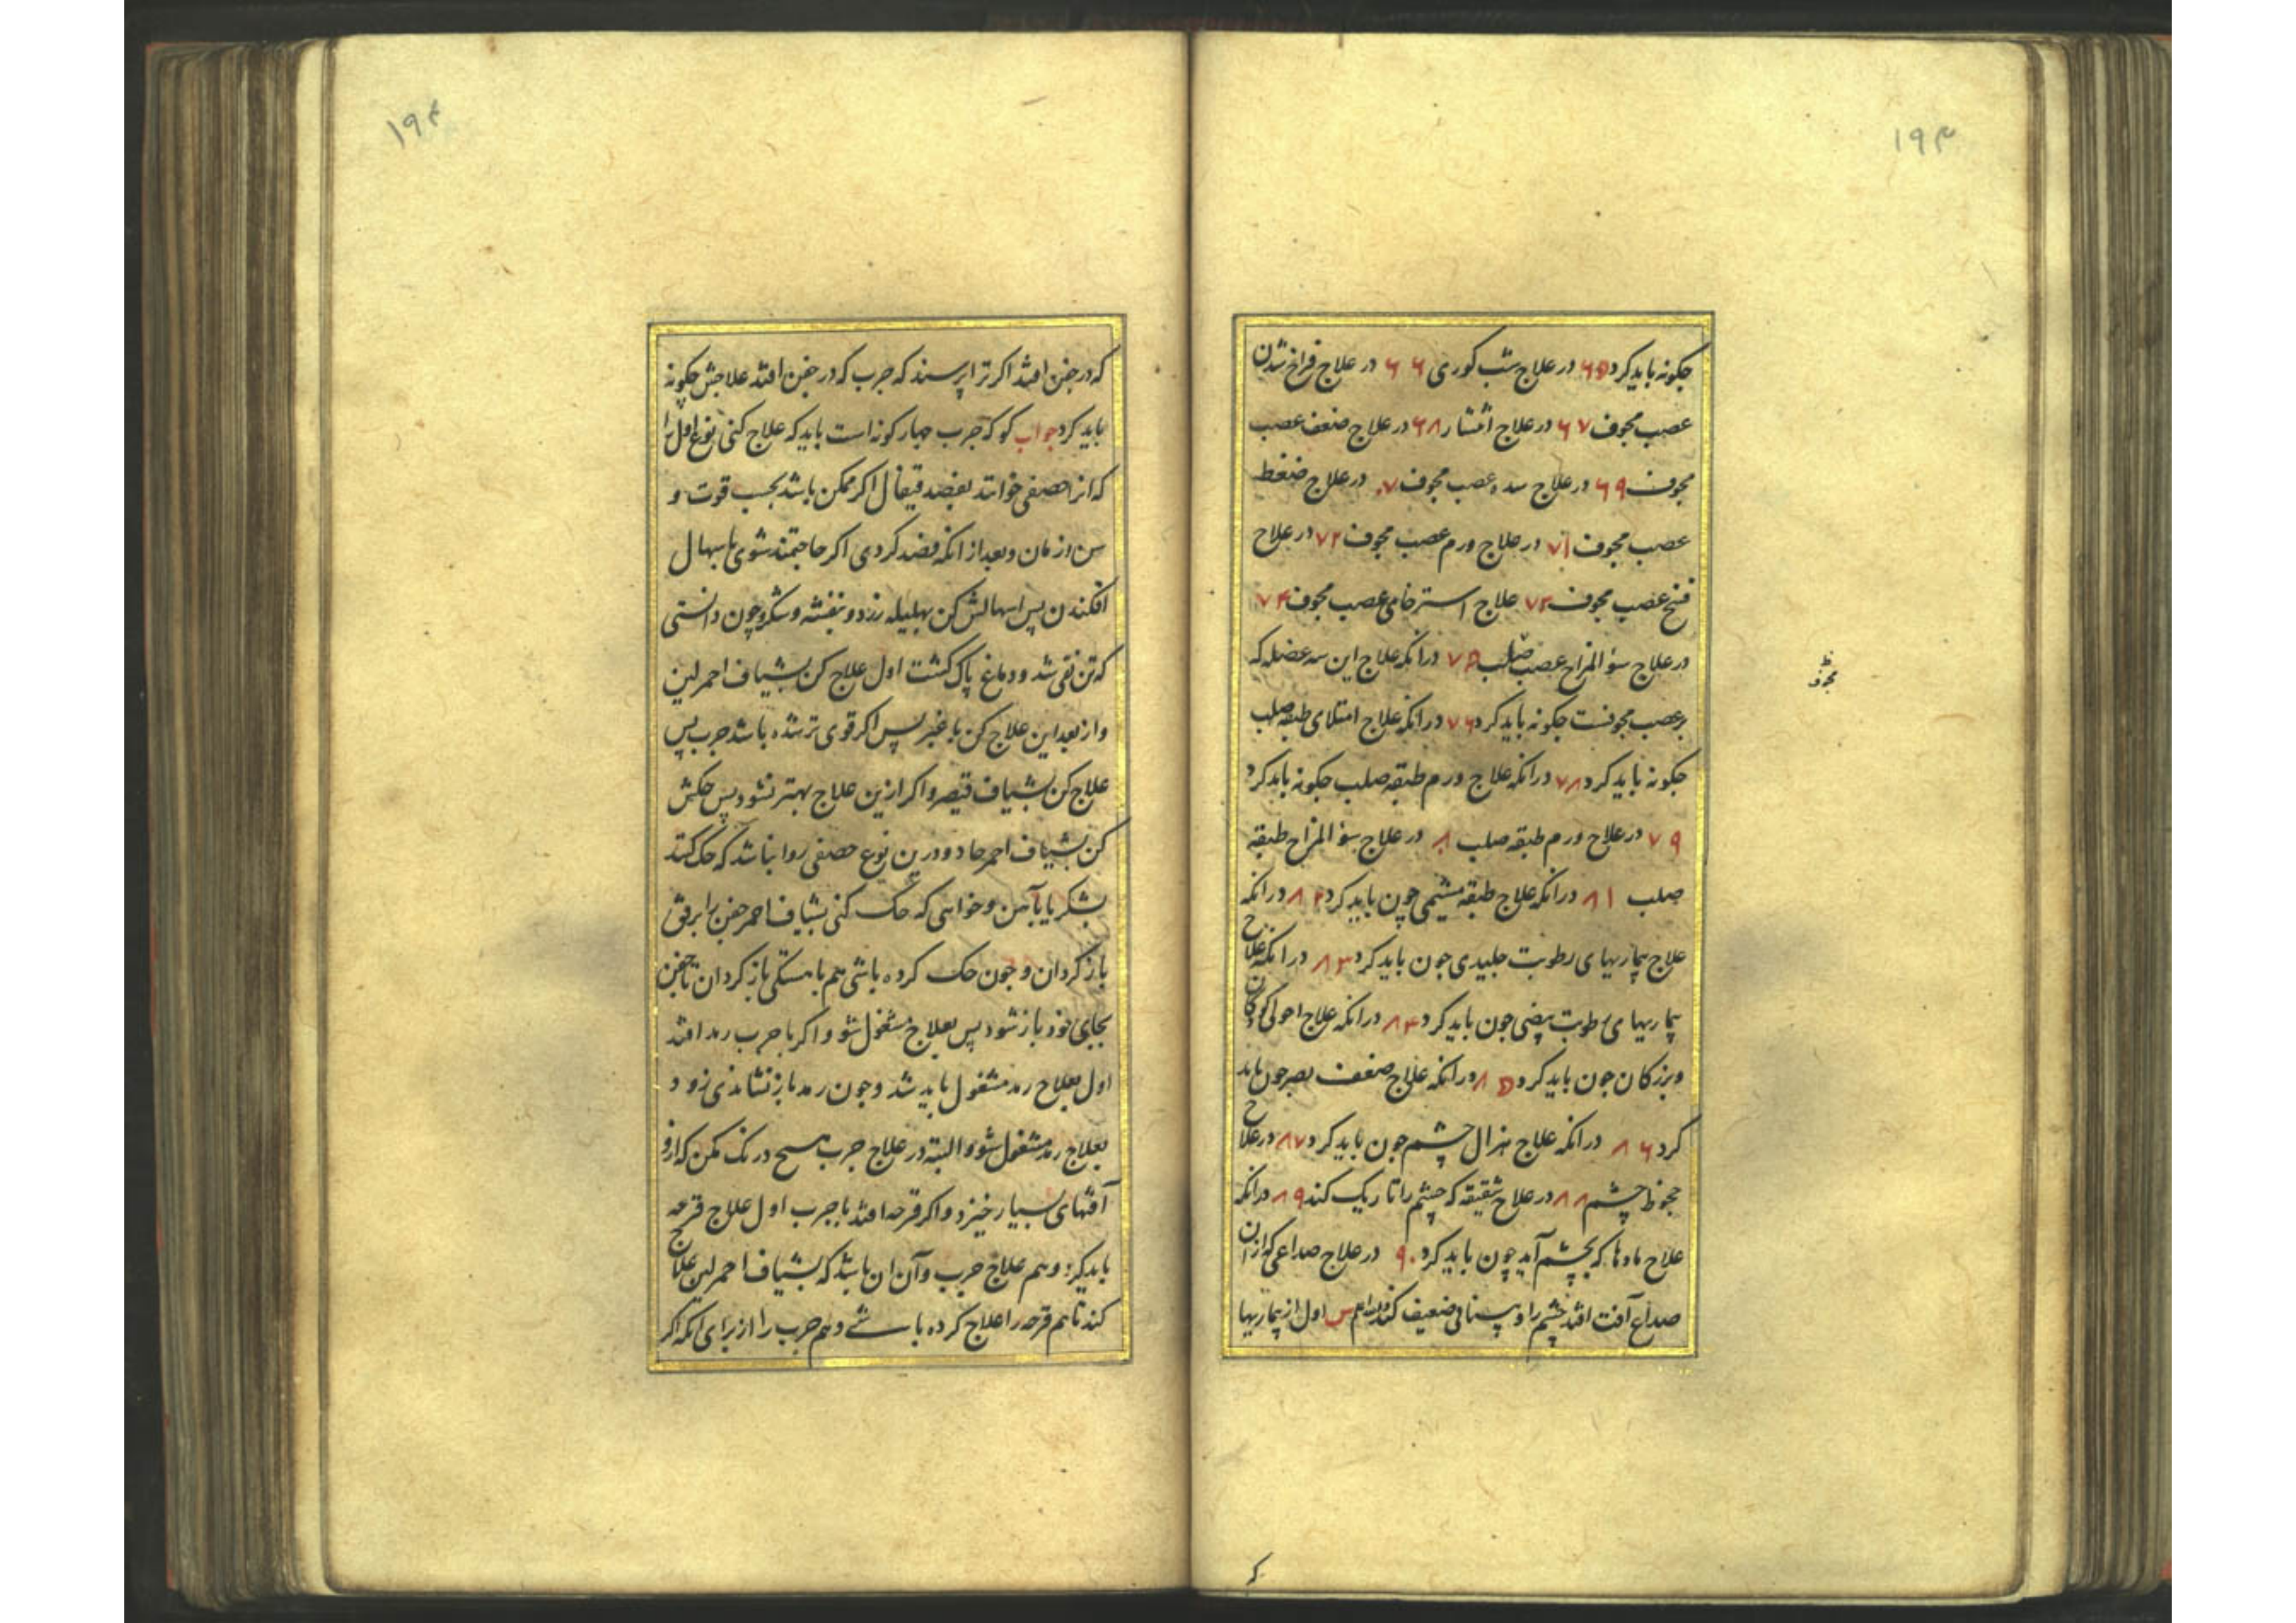 ۱۹۳
چکونه باید کرد ۶۵ در علاج شب کوری ۶۶ در علاج فراخ شدن
عصب مجوف ۶۷ در علاج انتشار ۶۸ در علاج ضعف عصب
مجوف ۶۹ در علاج سده عصب مجوف ۷۰ در علاج ضغط
عصب مجوف ۷۱ در علاج ورم عصب مجوف ۷۲ در علاج
فسخ عصب مجوف ۷۳ علاج استرخای عصب مجوف ۷۴
در علاج سؤ المزاج عصب صلب ۷۵ در انکه علاج این سه عضله که
بر عصب مجوفست چکونه باید کرد ۷۶ در انکه علاج امتلای طبقه صلب
چکونه باید کرد ۷۸ در انکه علاج ورم طبقه صلب چکونه باید کرد
۷۹ در علاج ورم طبقه صلب ۸۰ در علاج سؤ المزاج طبقه
صلب ۸۱ در انکه علاج طبقه مشیمی چون باید کرد ۸۲ در انکه
علاج بیماریهای رطوبت جلیدی چون باید کرد ۸۳ در انکه علاج
بیماریهای رطوبت بیضی چون باید کرد ۸۴ در انکه علاج احولی کودکان
وبزرکان چون باید کرد ۸۵ در انکه علاج ضعف بصر چون باید
کرد ۸۶ در انکه علاج هزال چشم چون باید کرد ۸۷ در علاج
جحوظ چشم ۸۸ در علاج شقیقه که چشم را تاریک کند ۸۹ در انکه
علاج مادها که بچشم آید چون باید کرد ۹۰ در علاج صداعی که از ان
صداع آفت افتد چشم را و بینائی ضعیف کند س اول از بیماریها
مجوف
۱۹۴
که در جفن افتد اکر ترا پرسند که جرب که در جفن افتد علاجش چکونه
باید کرد جواب کو که جرب چهار کونه است باید که علاج کنی نوع اول را
که انرا حصفی خوانند بفصد قیفال اکر ممکن باشد بحسب قوت و
سن و زمان و بعد از انکه فصد کردی اکر حاجتمند شوی باسهال
افکندن پس اسهالش کن بهلیله زرد و بنفشه و شکر و چون دانستی
که تن نقی شد و دماغ پاک کشت اول علاج کن بشیاف احمر لین
و از بعد این علاج کن باغبر پس اکر قوی تر شده باشد جرب پس
علاج کن بشیاف قیصر و اکر ازین علاج بهتر نشود پس حکش
کن بشیاف احمر حاد و درین نوع حصفی روا نباشد که حک کنند
بشکر یا بآهن و خواهی که حک کنی بشیاف احمر جفن را برفق
باز کردان و چون حک کرده باشی هم باهستکی باز کردان تا جفن
بجای خود باز شود پس بعلاج مشغول شو و اکر با جرب رمد افتد
اول بعلاج رمد مشغول باید شد و چون رمد باز نشاندی زود
بعلاج رمد مشغول شو و البته در علاج جرب هیچ درنک مکن که ازو
آفتهای بسیار خیزد و اکر قرحه افتد با جرب اول علاج قرحه
باید کرد و هم علاج جرب و آن ان باشد که بشیاف احمر لین علاج
کند تا هم قرحه را علاج کرده باشی و هم جرب را از برای انکه اکر